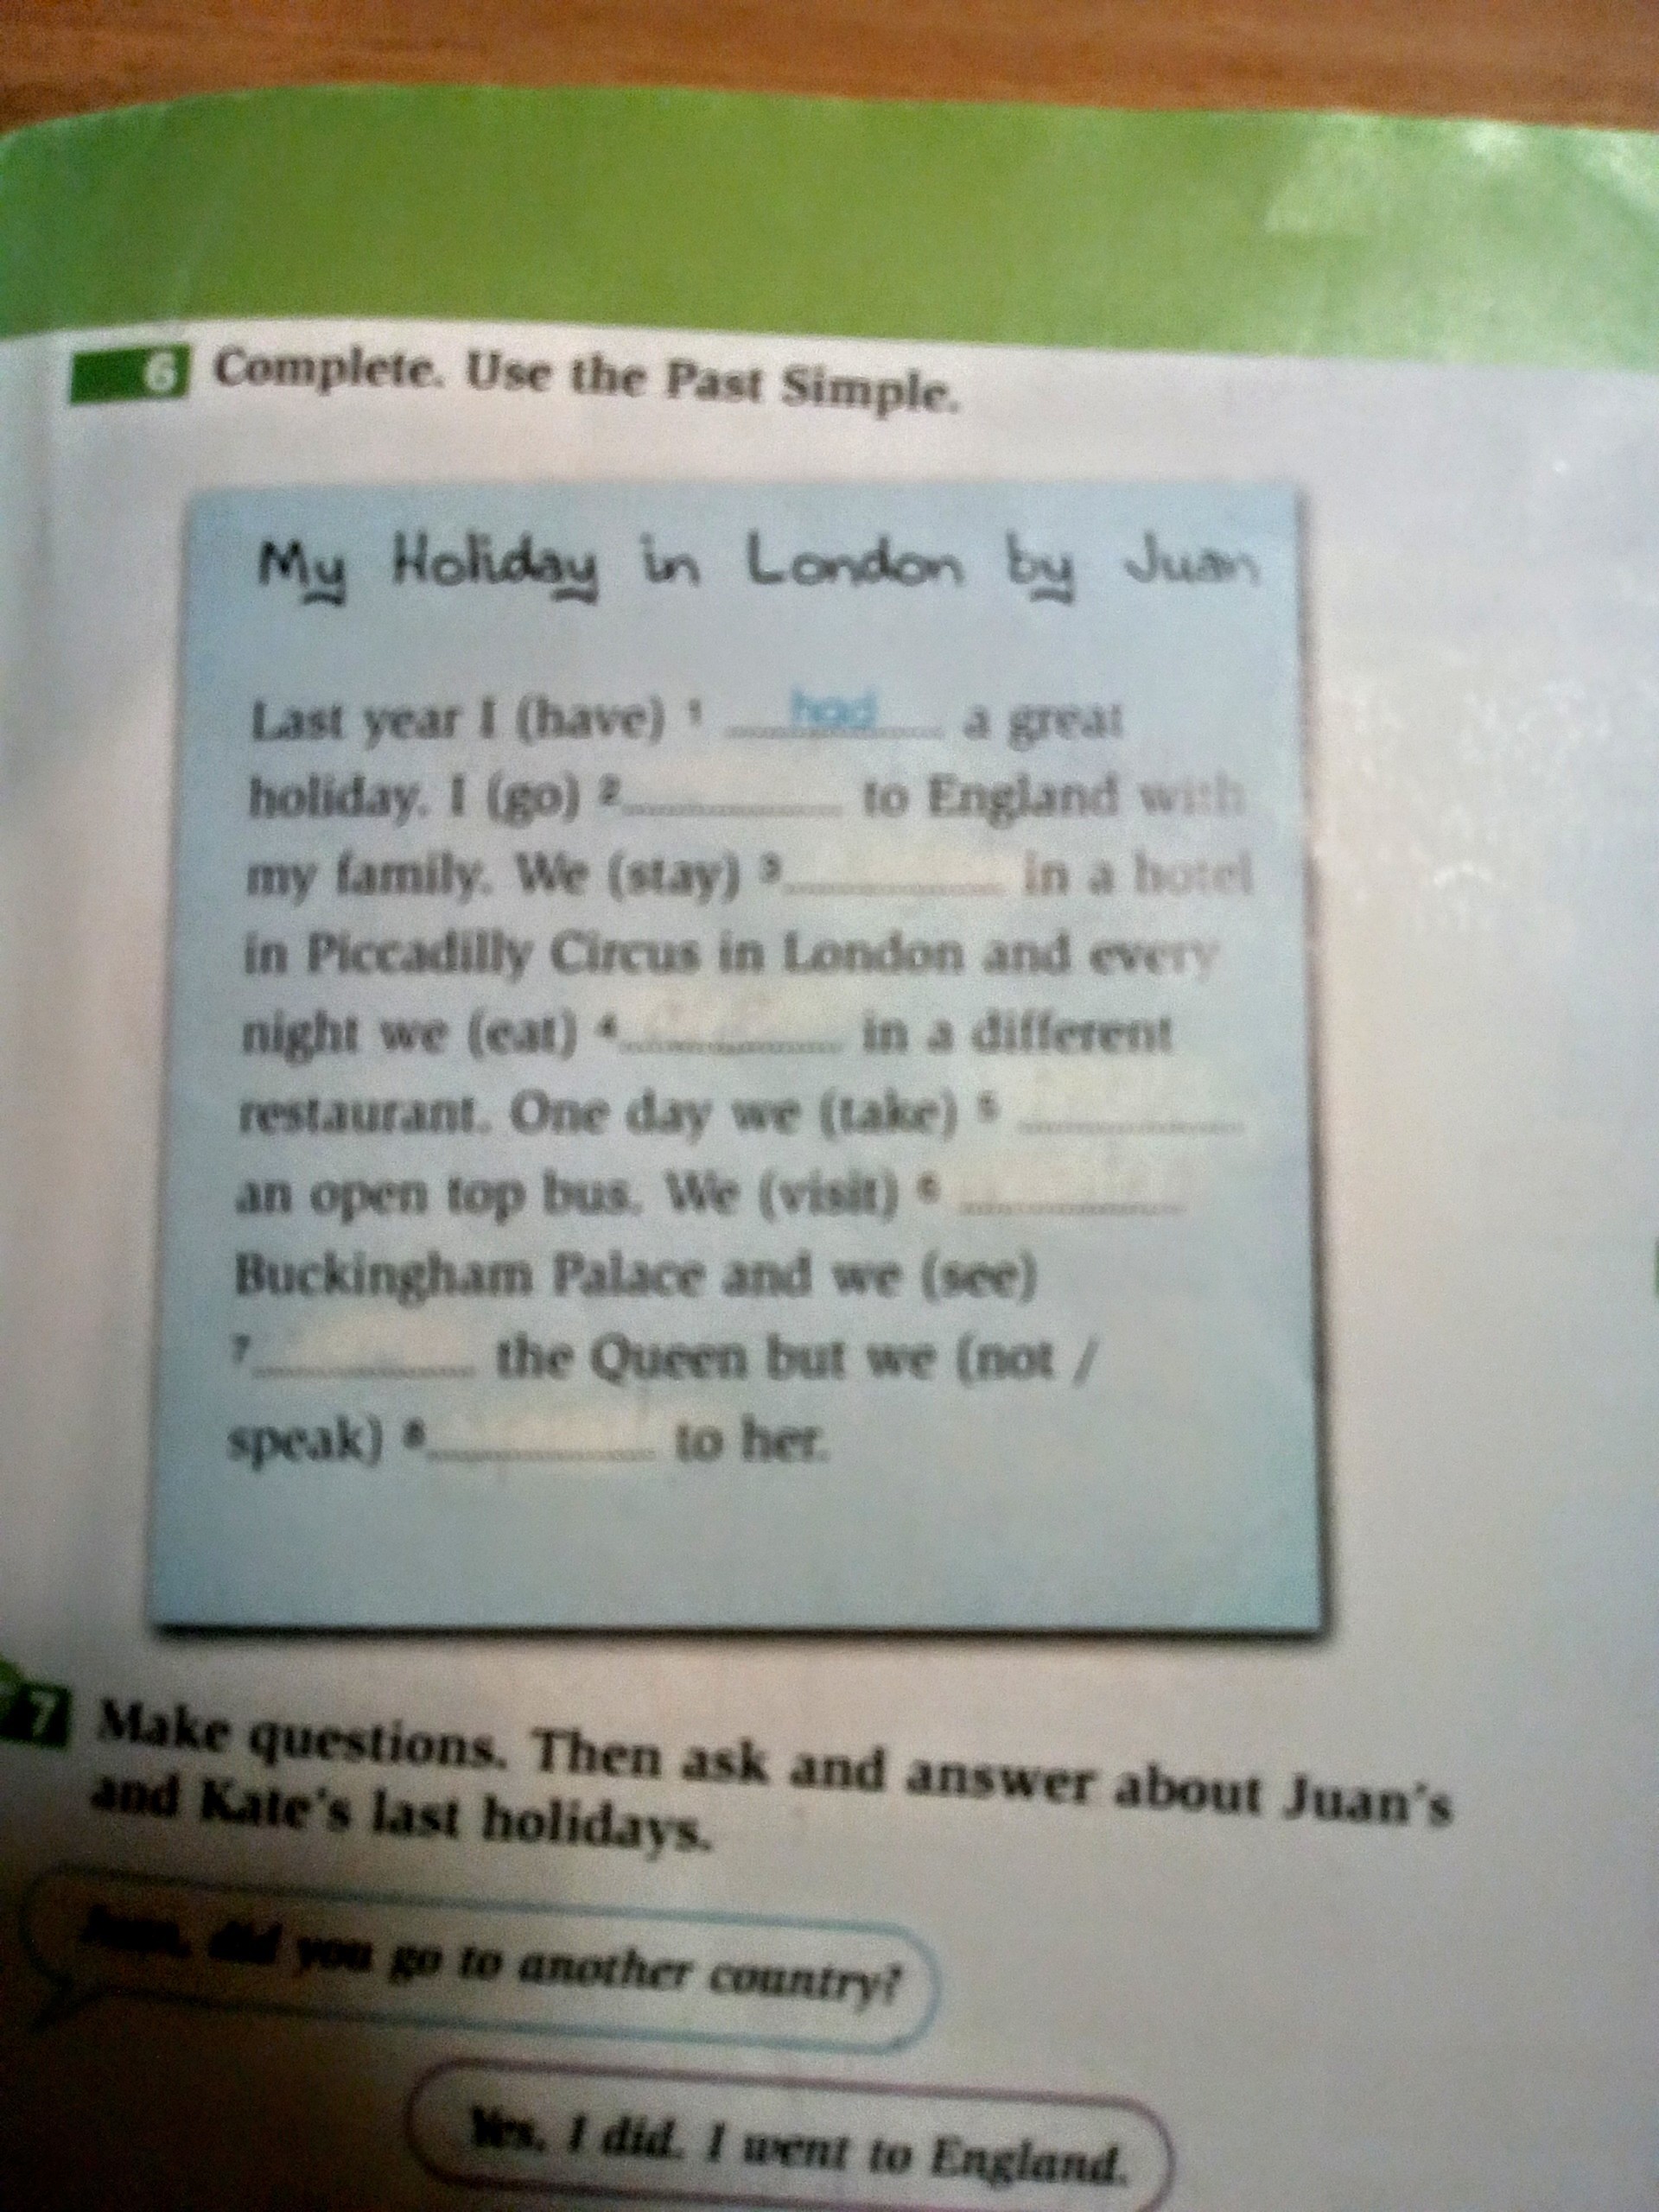 6 Complete. Use the Past Simple.
My Holiday in London by Juan
Last year I (have) 1 had a great
holiday. I (go) 2 to England with
my family. We (stay) 3 in a hotel
in Piccadilly Circus in London and every
night we (eat) 4 in a different
restaurant. One day we (take) 5
an open top bus. We (visit) 6
Buckingham Palace and we (see)
7 the Queen but we (not /
speak) 8 to her.
7 Make questions. Then ask and answer about Juan's
and Kate's last holidays.
Juan, did you go to another country?
Yes, I did. I went to England.